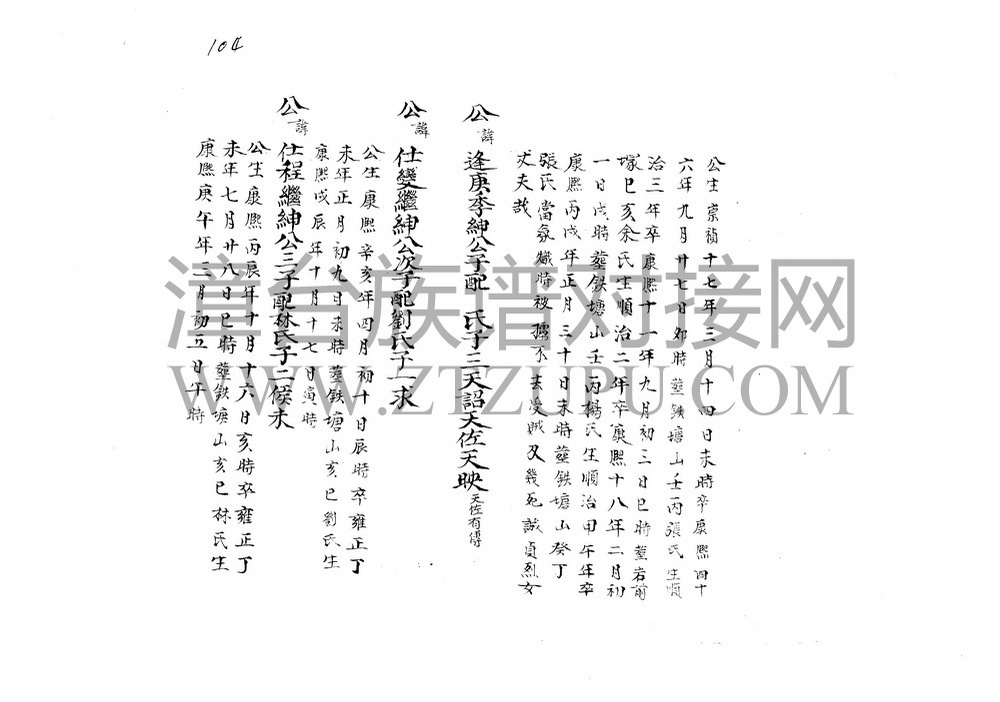 104
公生崇禎十七年三月十四日未時卒康熙四十
六年九月廿七日卯時葬鉄塘山壬丙張氏生順
治三年卒康熙十一年九月初三日巳時葬岩前
塚巳亥余氏生順治二年卒康熙十八年二月初
一日戌時葬鉄塘山壬丙楊氏生順治甲午年卒
康熙丙戌年正月三十日未時葬鉄塘山癸丁
張氏當氛熾時被擄不去受賊刄幾死誠貞烈女
丈夫哉
公諱逢庚季紳公子配 氏子三天詔天佐天映天佐有傳
公諱仕㸉繼紳公次子配劉氏子一求
公生康熙辛亥年四月初十日辰時卒雍正丁
未年正月初九日未時葬鉄塘山亥巳劉氏生
康熙戊辰年十月十七日寅時
公諱仕程繼紳公三子配林氏子二候未
公生康熙丙辰年十月十六日亥時卒雍正丁
未年七月廿八日巳時葬鉄塘山亥巳林氏生
康熙庚午年三月初五日午時
漳台族谱对接网
WWW.ZTZUPU.COM